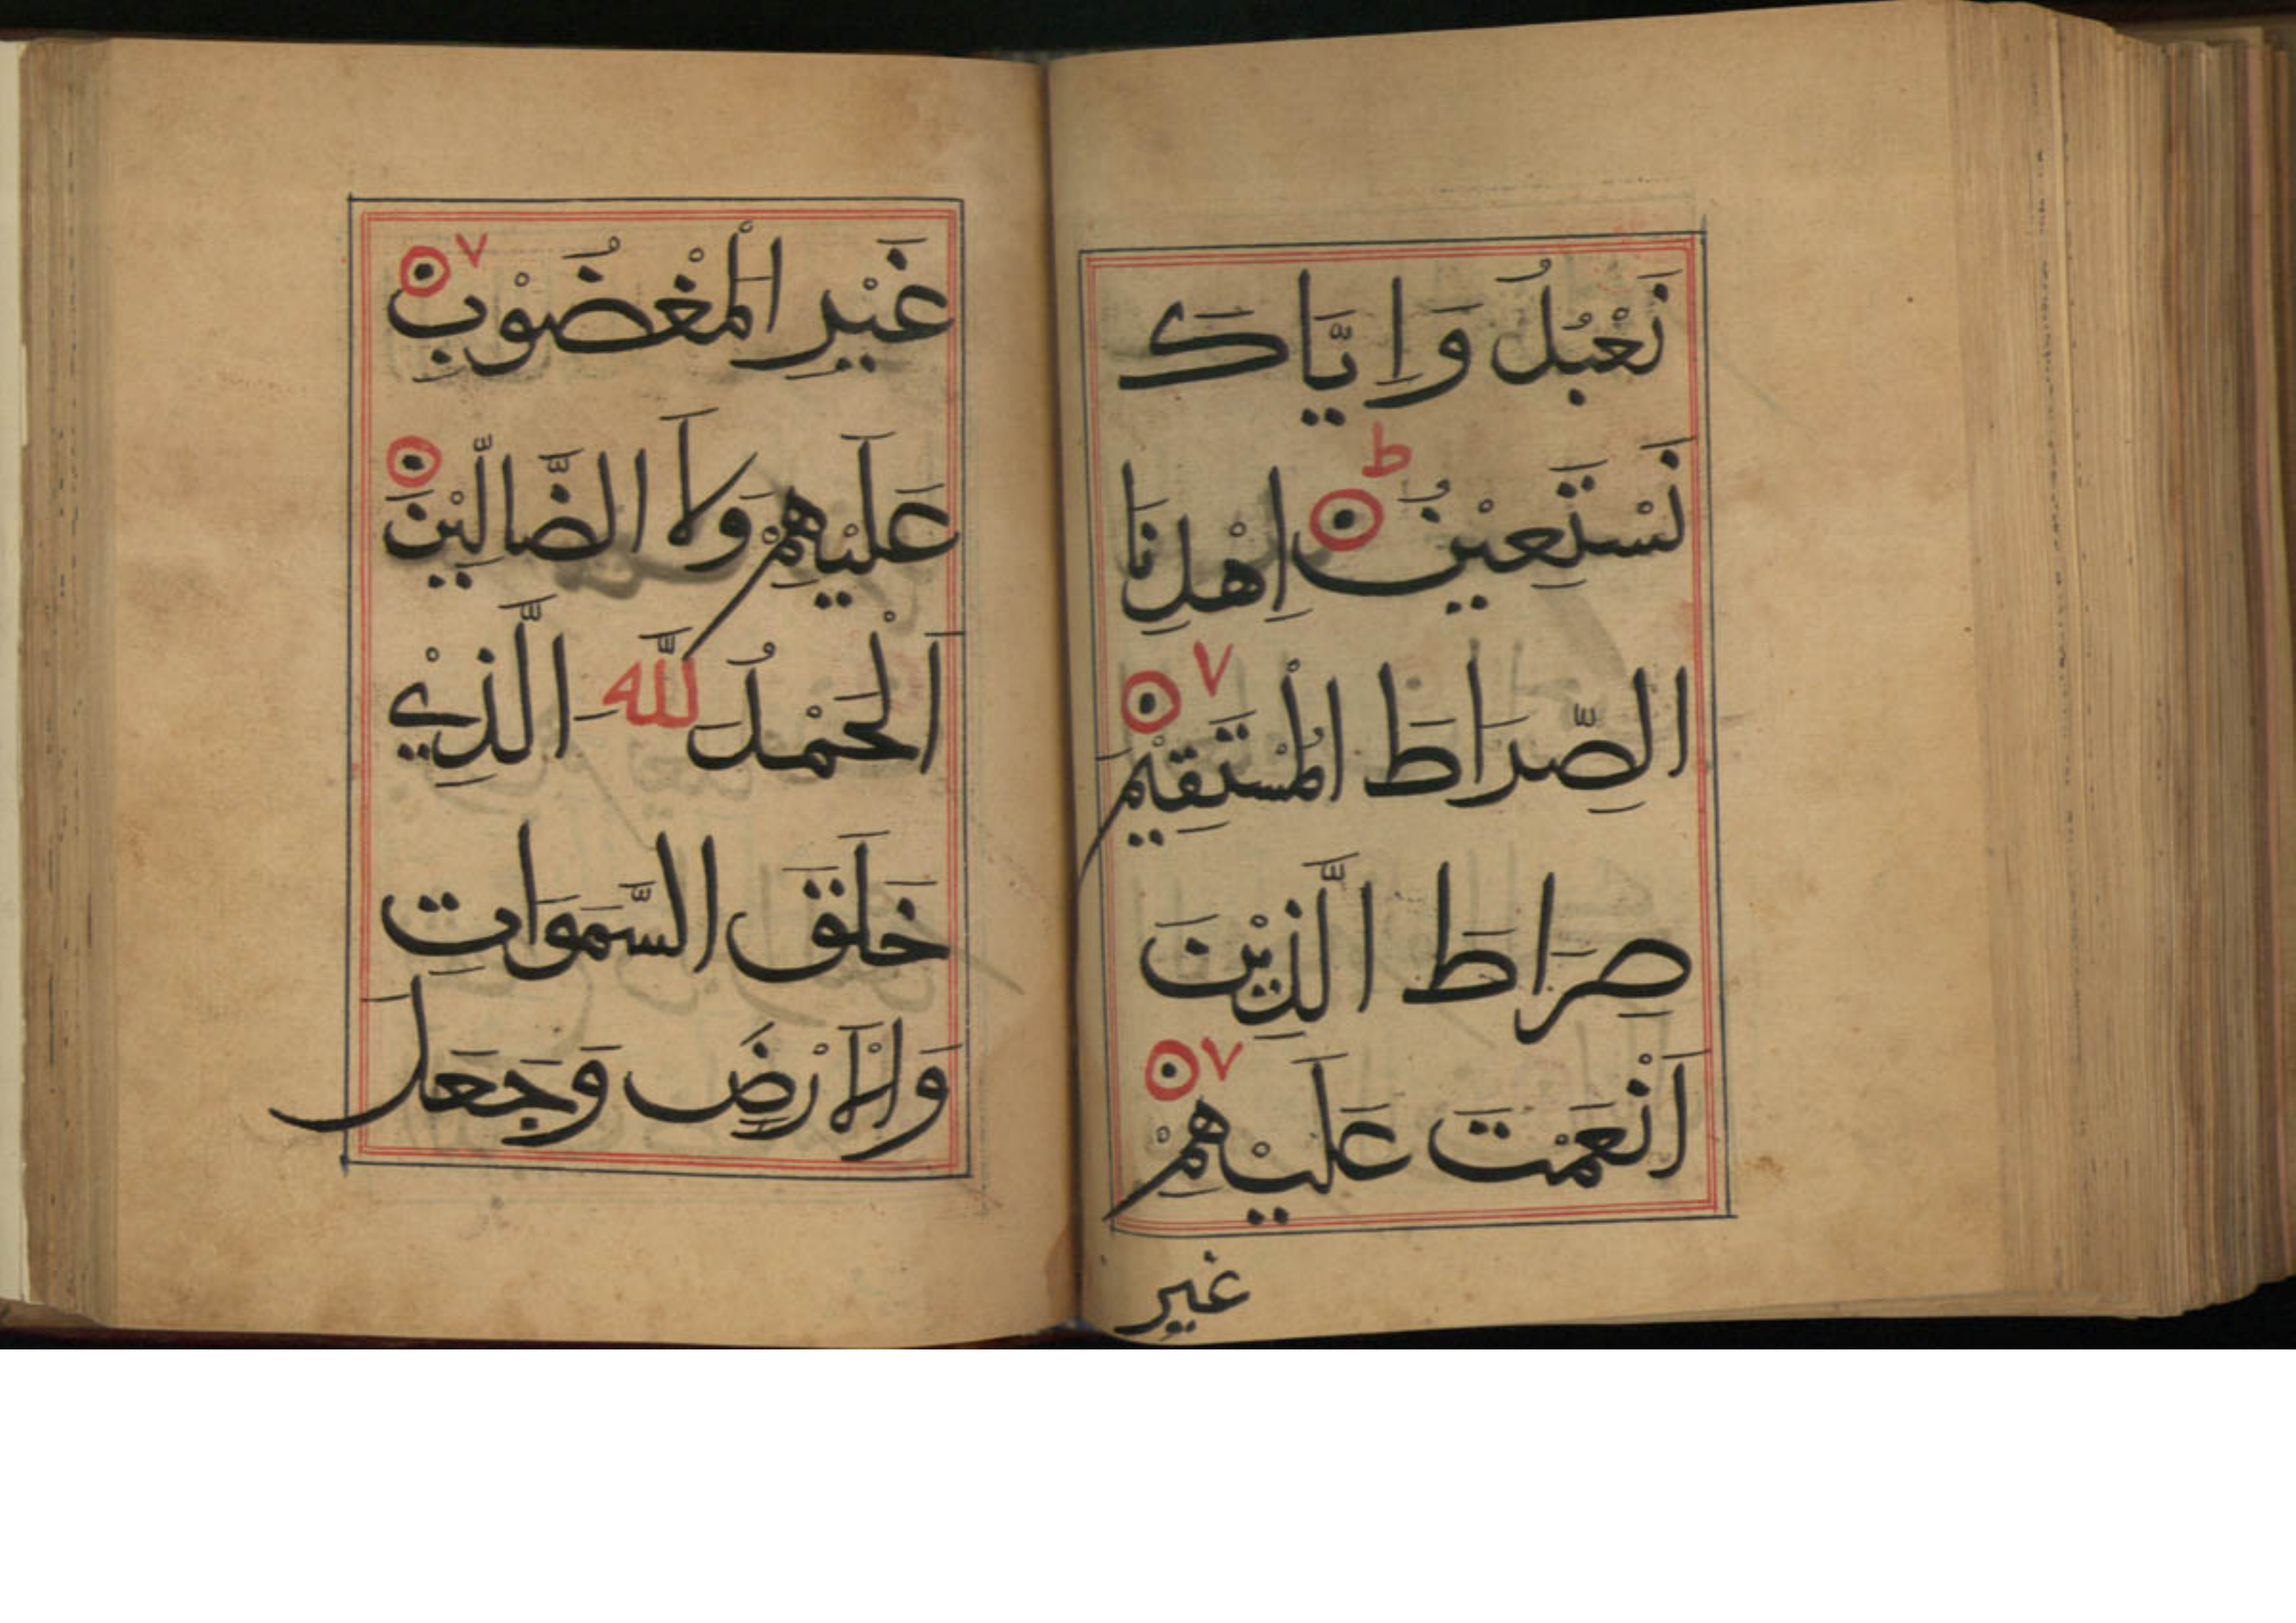 نَعْبُدُ وَاِيَّاكَ
نَسْتَعِيْنُ ط اِهْدِنَا
الصِّرَاطَ الْمُسْتَقِيْمَ ۷
صِرَاطَ الَّذِيْنَ
اَنْعَمْتَ عَلَيْهِمْ ۷
غير
غَيْرِ الْمَغْضُوْبِ ۷
عَلَيْهِمْ وَلَا الضَّالِّيْنَ
اَلْحَمْدُ لِلّٰهِ الَّذِيْ
خَلَقَ السَّمَوَاتِ
وَالْاَرْضَ وَجَعَلَ